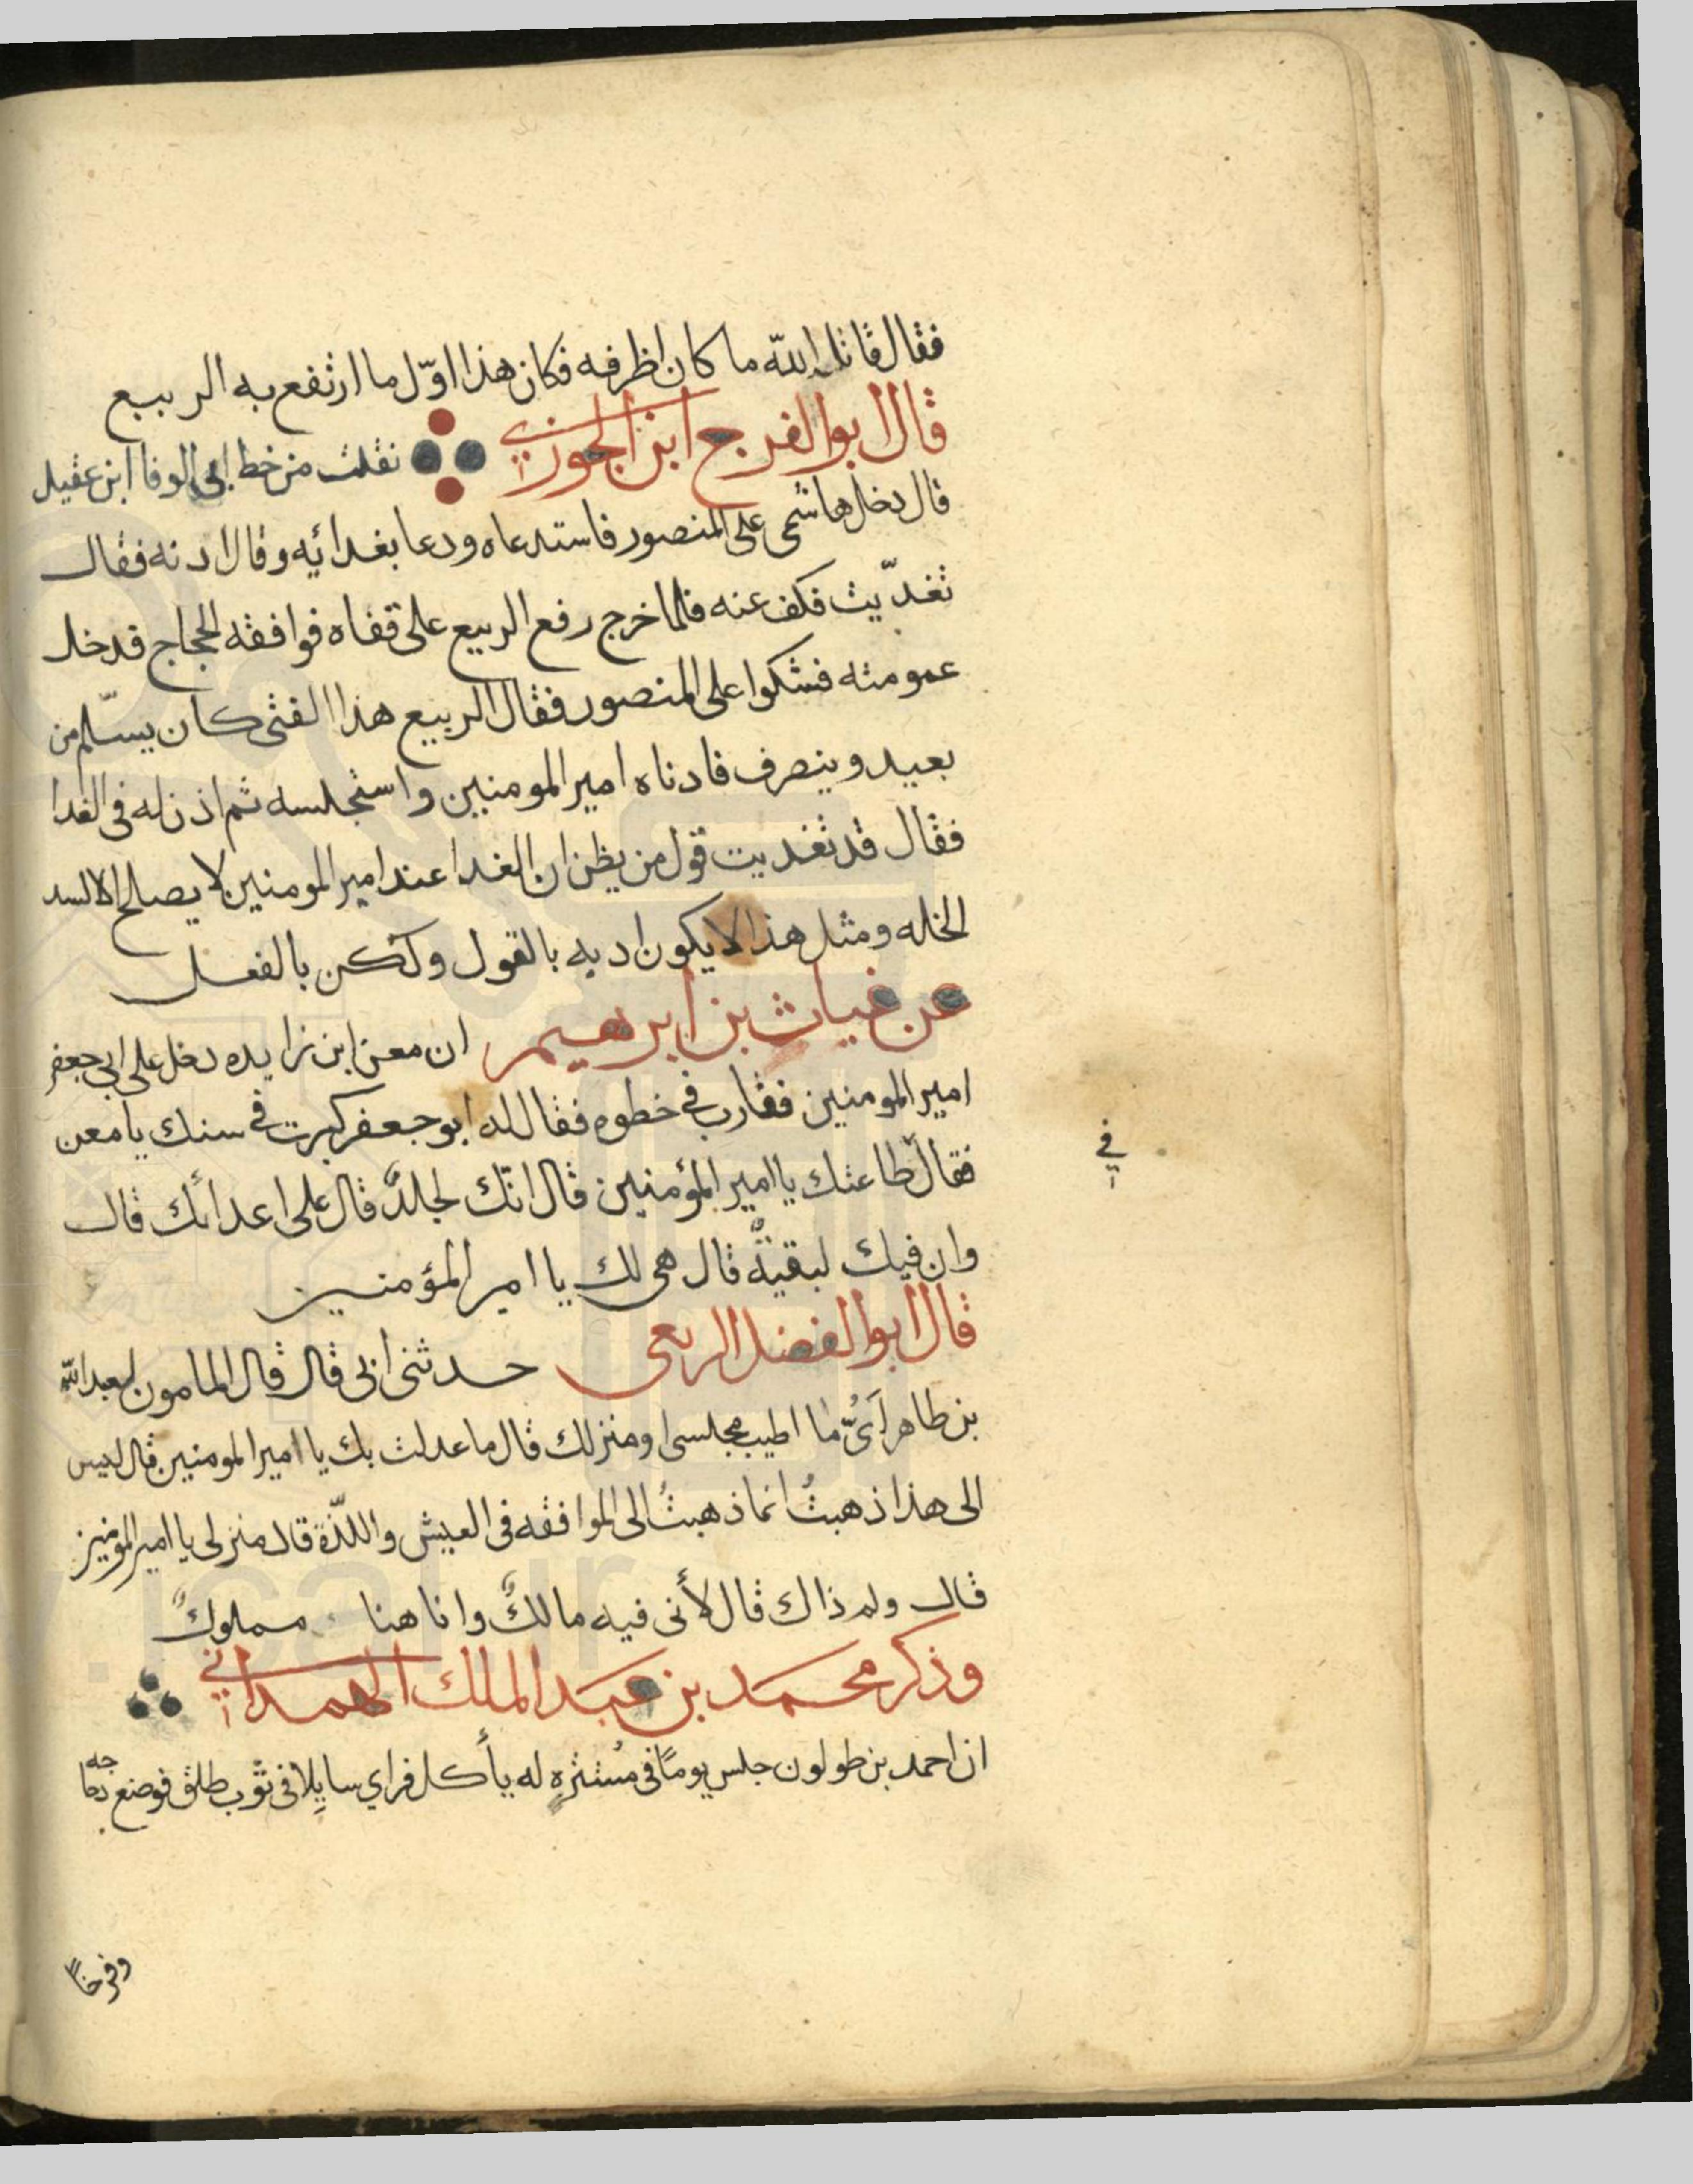 فقال قاتله الله ما كان اظرفه فكان هذا اوّل ما ارتفع به الربيع
قال ابو الفرج ابن الجوزي نقلت من خط ابي الوفا ابن عقيل
قال دخل هاشمى على المنصور فاستدعاه ودعا بغدائيه وقال ادنه فقال
تغدّيت فكف عنه فلما خرج رفع الربيع على قفاه فوافقه الحجاج فدخل
عمومته فشكوا على المنصور فقال الربيع هذا الفتى كان يسلّم من
بعيد وينصرف فادناه امير المومنين واستجلسه ثم اذن له فى الغدا
فقال قد تغديت قول من يظن ان الغدا عند امير المومنين لا يصلح الا لسد
الخله ومثل هذا لا يكون ادبه بالقول ولكن بالفعل
عن غياث بن ابرهيم ان معن ابن زايده دخل على ابي جعفر
امير المومنين فقارب في خطوه فقال له ابو جعفر كبرت في سنك يا معن
فقال طاعتك يا امير المؤمنين قال انّك لجلدٌ قال على اعدائك قال
وان فيك لبقيةٌ قال هى لك يا امير المؤمنين
قال ابو الفضل الربعى حدثنى ابى قال قال المامون لعبد الله
بن طاهر أيُّما اطيب مجلسى او منزلك قال ما عدلت بك يا امير المومنين قال ليس
الى هذا ذهبتُ انما ذهبتُ الى الموافقه فى العيش واللذّة قال منزلى يا امير المومنين
قال ولم ذاك قال لأنى فيه مالكٌ وانا هنا مملوكٌ
وذكر محمد بن عبد الملك الهمداني
ان احمد بن طولون جلس يومًا فى مُتنزهٍ له يأكل فراي سايلا فى ثوب طلق فوضع دجاجه
وفرخاً
في